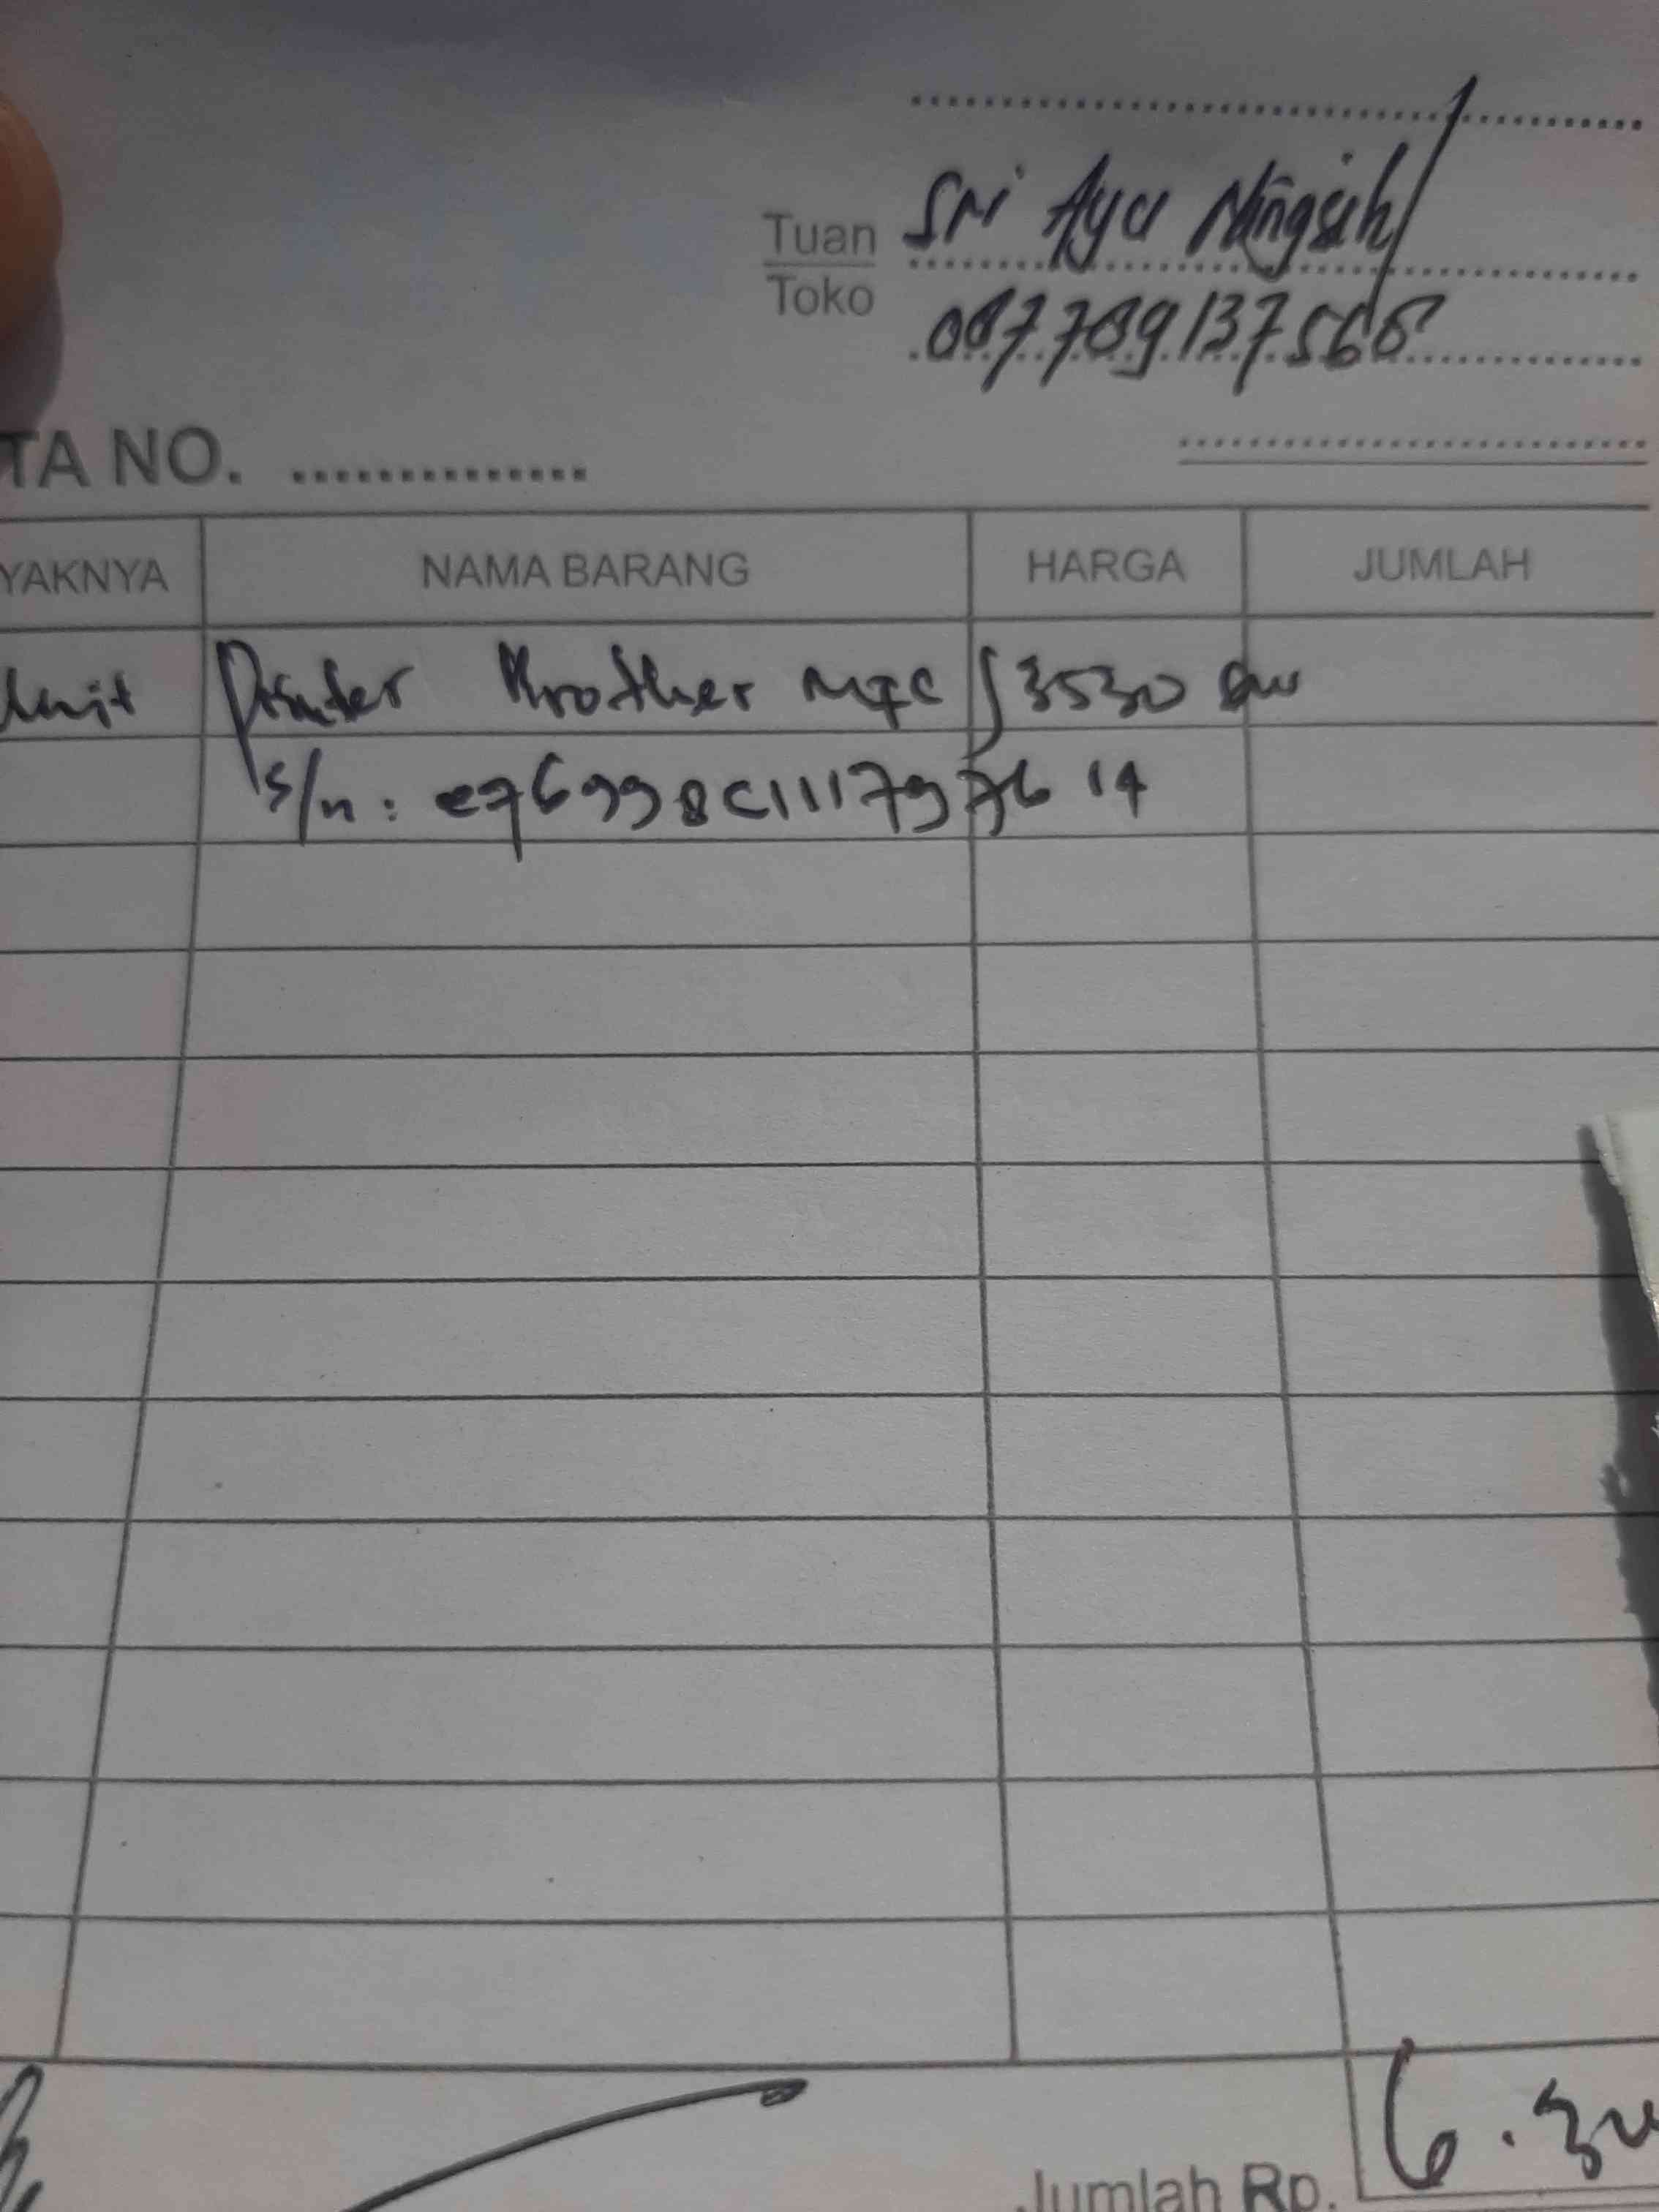 Tuan Sri Ayu Ningsih
Toko 087789137568
TA NO. ...............
YAKNYA NAMA BARANG HARGA JUMLAH
Unit Printer Brother MFC J3530 DW
S/n: e76998C111797614
Jumlah Rp. 6.30